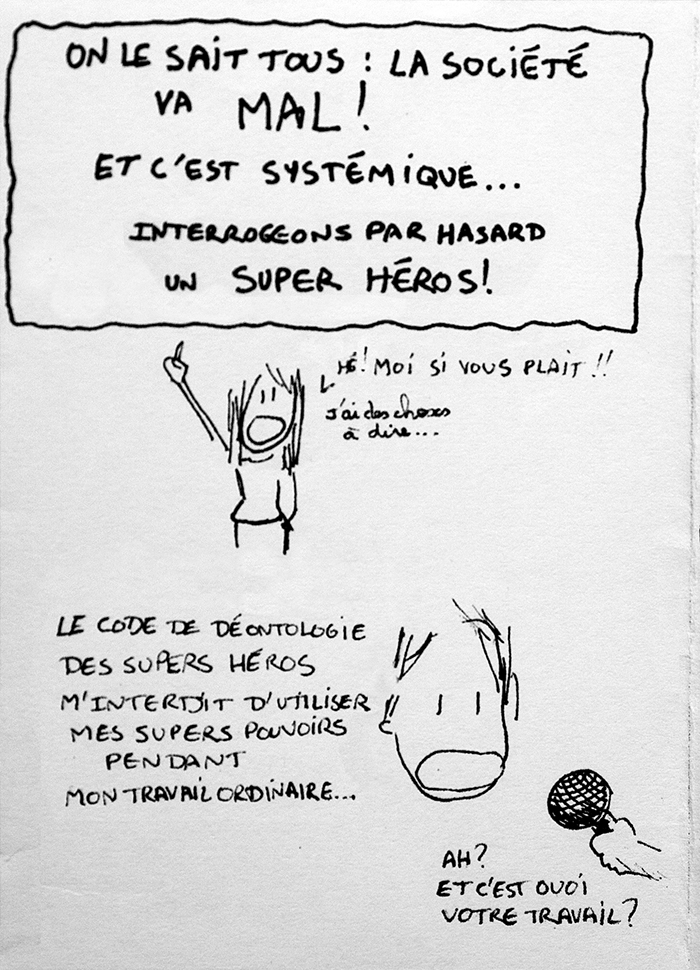 ON LE SAIT TOUS : LA SOCIÉTÉ
VA MAL !
ET C'EST SYSTÉMIQUE...
INTERROGEONS PAR HASARD
UN SUPER HÉROS !
HÉ! MOI SI VOUS PLAIT !!
J'ai des choses
à dire...
LE CODE DE DÉONTOLOGIE
DES SUPERS HÉROS
M'INTERDIT D'UTILISER
MES SUPERS POUVOIRS
PENDANT
MON TRAVAIL ORDINAIRE...
AH?
ET C'EST QUOI
VOTRE TRAVAIL?